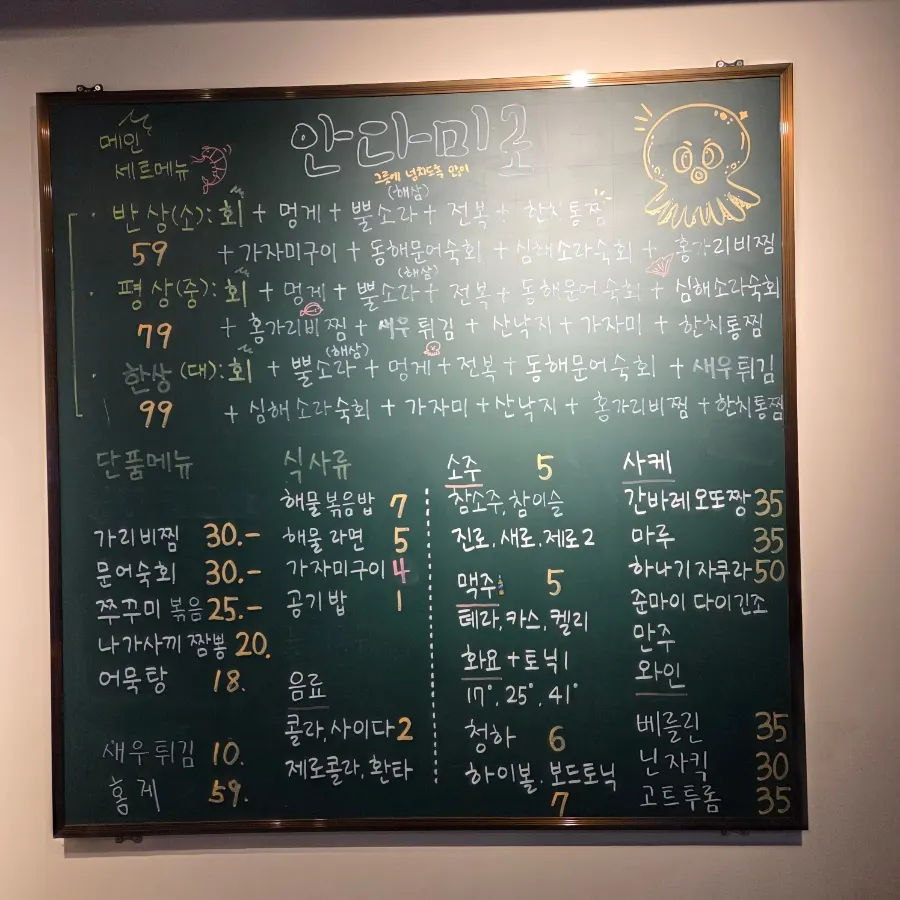 메인
세트메뉴
안다미로
그릇에 넘치도록 많이
(해삼)
반상(소): 회 + 멍게 + 뿔소라 + 전복 + 한치통찜
59 + 가자미구이 + 동해문어숙회 + 심해소라숙회 + 홍가리비찜
(해삼)
평상(중): 회 + 멍게 + 뿔소라 + 전복 + 동해문어숙회 + 심해소라숙회
79 + 홍가리비찜 + 새우튀김 + 산낙지 + 가자미 + 한치통찜
(해삼)
한상(대): 회 + 뿔소라 + 멍게 + 전복 + 동해문어숙회 + 새우튀김
99 + 심해소라숙회 + 가자미 + 산낙지 + 홍가리비찜 + 한치통찜
단품메뉴
가리비찜 30.-
문어숙회 30.-
쭈꾸미볶음 25.-
나가사끼짬뽕 20.
어묵탕 18.
새우튀김 10.
홍게 59.
식사류
해물볶음밥 7
해물라면 5
가자미구이 4
공기밥 1
음료
콜라, 사이다 2
제로콜라, 환타
소주 5
참소주, 참이슬
진로, 새로, 제로2
맥주: 5
테라, 카스, 켈리
화요 + 토닉1
17°, 25°, 41°
청하 6
하이볼. 보드토닉
7
사케
간바레오또짱 35
마루 35
하나기자쿠라 50
준마이 다이긴조
만주
와인
베를린 35
닌자킥 30
고트투롬 35